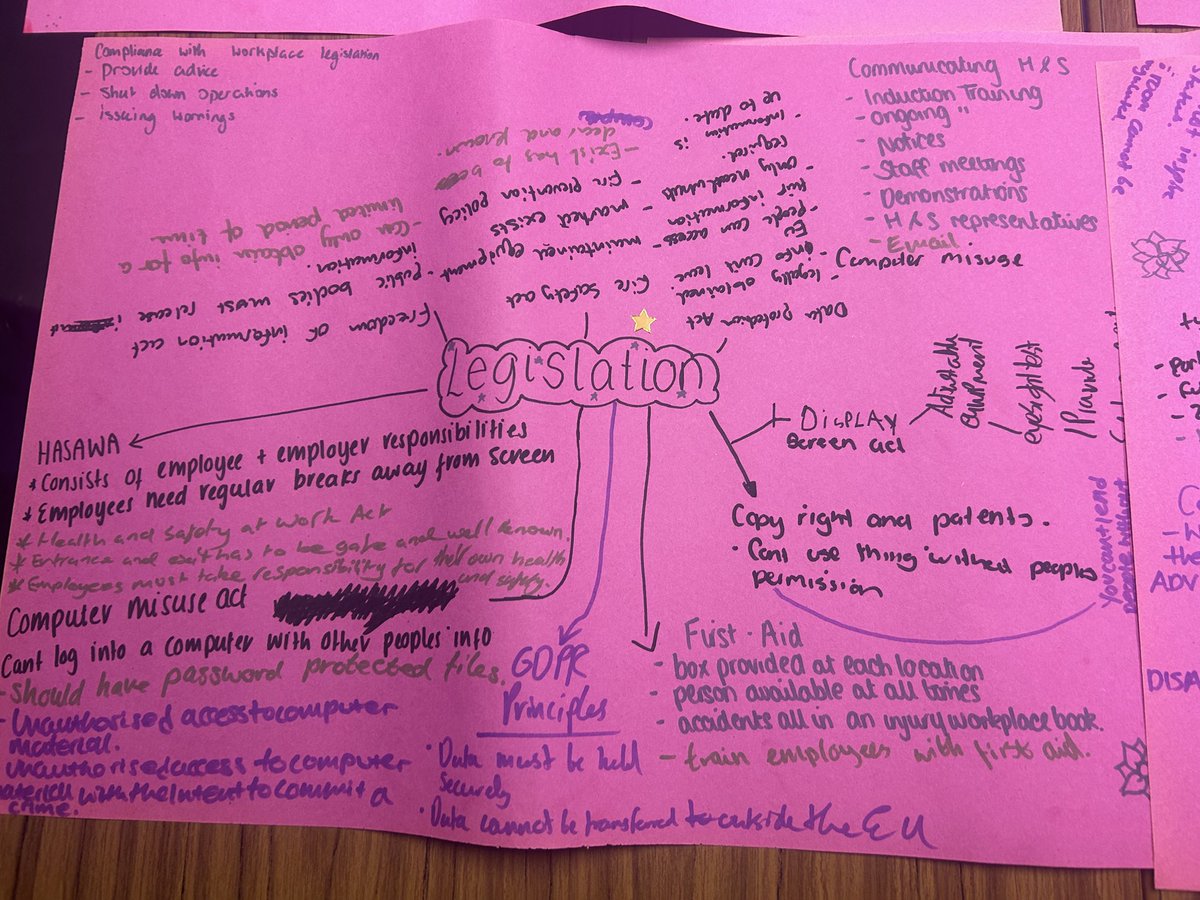 Compliance with workplace legislation
- Provide advice
- Shut down operations
- issuing warnings
Communicating H & S
- Induction Training
- ongoing "
- Notices
- Staff meetings
- Demonstrations
- H & S representatives
- Email.
- Computer misuse
Legislation
Freedom of information act
- public bodies must release
information.
- Can only obtain info for a
limited period of time
Fire Safety act
- maintained equipment
- marked exists
- Fire prevention policy
- Exist has to be
clear and known.
Data protection Act
- legally obtained.
info can't leave
EU
- people can access
their information
- only need whats
required.
- Information is
up to date.
HASAWA
* Consists of employee + employer responsibilities
* Employees need regular breaks away from screen
* Health and Safety at Work Act
* Entrance and exit has to be safe and well known.
* Employees must take responsibility for their own health
and safety.
Computer misuse act
Cant log into a computer with other peoples info
- Should have password protected files.
- Unauthorised access to computer
material.
unauthorised access to computer
material with the intent to commit a
crime.
GDPR
Principles
• Data must be held
securely
• Data cannot be transferred to outside the EU
First-Aid
- box provided at each location
- person available at all times
- accidents all in an injury workplace book.
- train employees with first aid.
Copy right and patents.
• Cant use thing without peoples
permission
DISPLAY
Screen act
Adjustable
equipment
eyesight test
Provide
You cant lend
people without
room cannot be
ADV
DISA